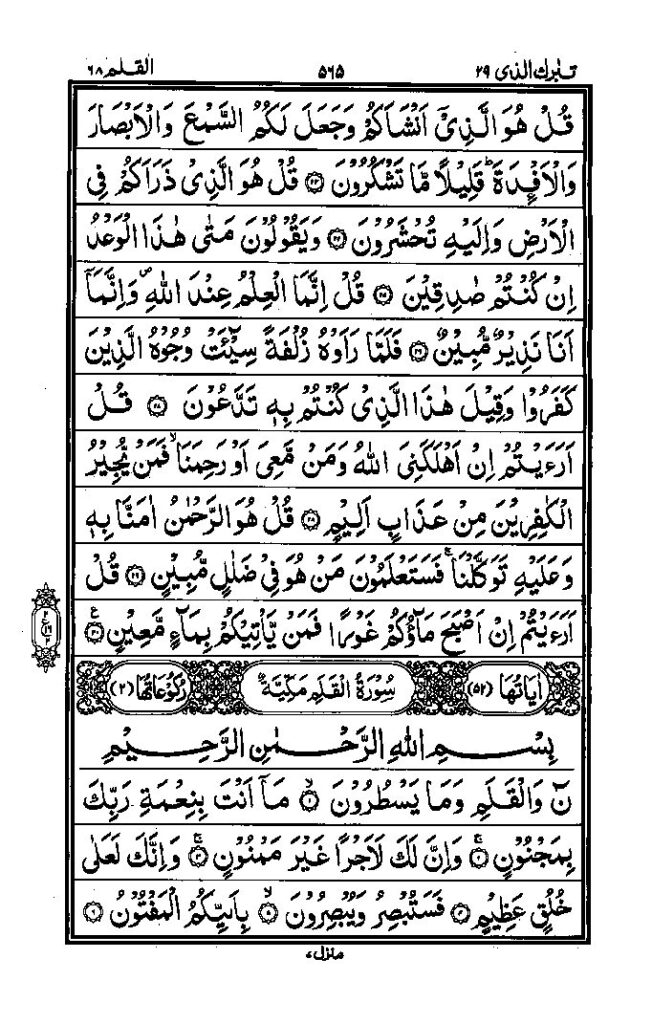 تبٰرك الذی ٢٩ ٥٦٥ القلم ٦٨
قُلْ هُوَ الَّذِیْۤ اَنْشَاَكُمْ وَجَعَلَ لَكُمُ السَّمْعَ وَالْاَبْصَارَ
وَالْاَفْـِٕدَةَ ؕ قَلِیْلًا مَّا تَشْكُرُوْنَ ﴿۲۳﴾ قُلْ هُوَ الَّذِیْ ذَرَاَكُمْ فِی
الْاَرْضِ وَاِلَیْهِ تُحْشَرُوْنَ ﴿۲۴﴾ وَیَقُوْلُوْنَ مَتٰی هٰذَا الْوَعْدُ
اِنْ كُنْتُمْ صٰدِقِیْنَ ﴿۲۵﴾ قُلْ اِنَّمَا الْعِلْمُ عِنْدَ اللّٰهِ ۪ وَاِنَّمَاۤ
اَنَا نَذِیْرٌ مُّبِیْنٌ ﴿۲۶﴾ فَلَمَّا رَاَوْهُ زُلْفَةً سِیْٓـَٔتْ وُجُوْهُ الَّذِیْنَ
كَفَرُوْا وَقِیْلَ هٰذَا الَّذِیْ كُنْتُمْ بِهٖ تَدَّعُوْنَ ﴿۲۷﴾ قُلْ
اَرَءَیْتُمْ اِنْ اَهْلَكَنِیَ اللّٰهُ وَمَنْ مَّعِیَ اَوْ رَحِمَنَا ۙ فَمَنْ یُّجِیْرُ
الْكٰفِرِیْنَ مِنْ عَذَابٍ اَلِیْمٍ ﴿۲۸﴾ قُلْ هُوَ الرَّحْمٰنُ اٰمَنَّا بِهٖ
وَعَلَیْهِ تَوَكَّلْنَا ۚ فَسَتَعْلَمُوْنَ مَنْ هُوَ فِیْ ضَلٰلٍ مُّبِیْنٍ ﴿۲۹﴾ قُلْ
اَرَءَیْتُمْ اِنْ اَصْبَحَ مَآؤُكُمْ غَوْرًا فَمَنْ یَّاْتِیْكُمْ بِمَآءٍ مَّعِیْنٍ ﴿۳۰﴾ ع
اٰیَاتُهَا (٥٢) سُوْرَةُ الْقَلَمِ مَكِّیَّةٌ رُكُوْعَاتُهَا (٢)
بِسْمِ اللّٰهِ الرَّحْمٰنِ الرَّحِیْمِ
نٓ وَالْقَلَمِ وَمَا یَسْطُرُوْنَ ۙ﴿۱﴾ مَاۤ اَنْتَ بِنِعْمَةِ رَبِّكَ
بِمَجْنُوْنٍ ۚ﴿۲﴾ وَاِنَّ لَكَ لَاَجْرًا غَیْرَ مَمْنُوْنٍ ۚ﴿۳﴾ وَاِنَّكَ لَعَلٰی
خُلُقٍ عَظِیْمٍ ﴿۴﴾ فَسَتُبْصِرُ وَیُبْصِرُوْنَ ۙ﴿۵﴾ بِاَیِّىكُمُ الْمَفْتُوْنُ ﴿۶﴾
منزل ٧